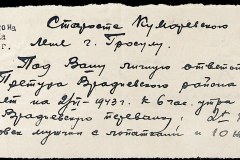 она
г.
Старосте Кумаревского
г. Гросулу.
Под Вашу личную ответст
Претура Врадиевского района
ет на 2/VI - 1943 г. к 6 час. утра
Врадиевскую перевалку: 2
овек мужчин с лопатками и 10